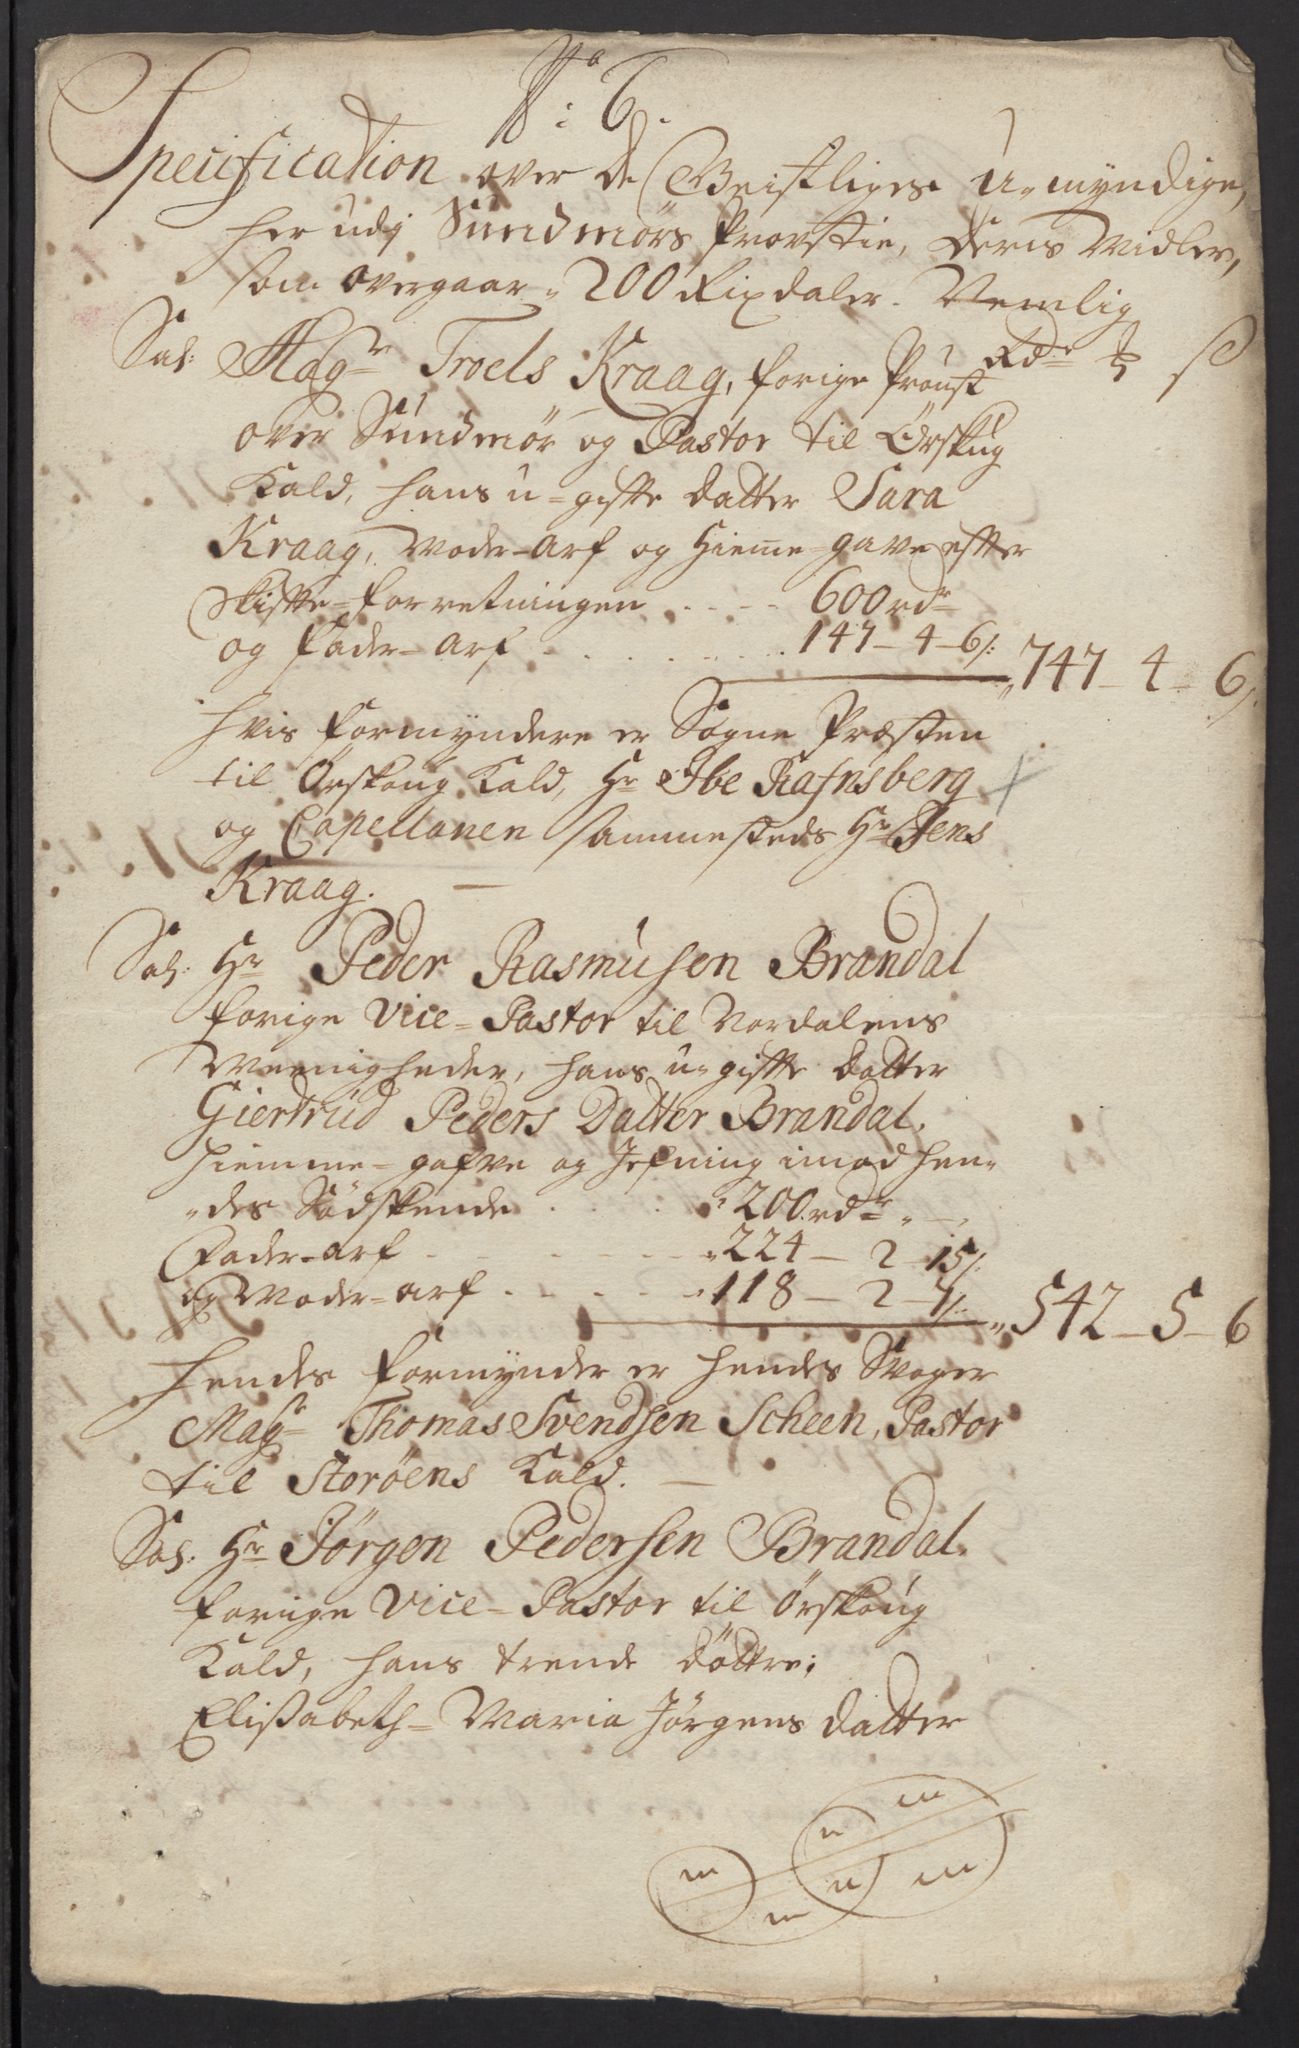 No: 6.
Specification over de Geistliges u-myndige,
her udj Sundmørs Provstie, deris Midler,
som overgaar 200 Rixdaler. Nemlig
Rdr
Sal: Magr Troels Kraag, forige Proust
over Sundmør og Pastor til Ørskug
Kald, hans u=gifte datter Sara
Kraag, Moder-Arf og Hieme=gave effter
Skiffte=forretningen . . . . 600 rdr
og Fader-Arf . . . . . . 147-4-6/: 747-4-6/:
hvis formyndere er Sogne Præsten
til Ørskoug Kald, Hr Ibe Rafnsberg
og Capellanen sammesteds Hr Jens
Kraag. —
Sal: Hr Peder Rasmusen Brandal
forige Vice=Pastor til Nordalens
Meenigheder, hans u=giffte datter
Giertrud Peders Datter Brandal,
hiemme=gafve og Jefning imod hen=
des Sødskende . . . 200 rdr
Fader-arf . . . . . . 224-2-15/:
og Moder=arf . . . . . 118-2-7/: 542-5-6
hendes formynder er hendes Svoger
Magr Thomas Svendsen Scheen, Pastor
til Storøens Kald. —
Sal: Hr Jörgen Pedersen Brandal
forige Vice=Pastor til Ørskoug
Kald, hans trende döttre;
Elisabeth=Maria Jörgens datter